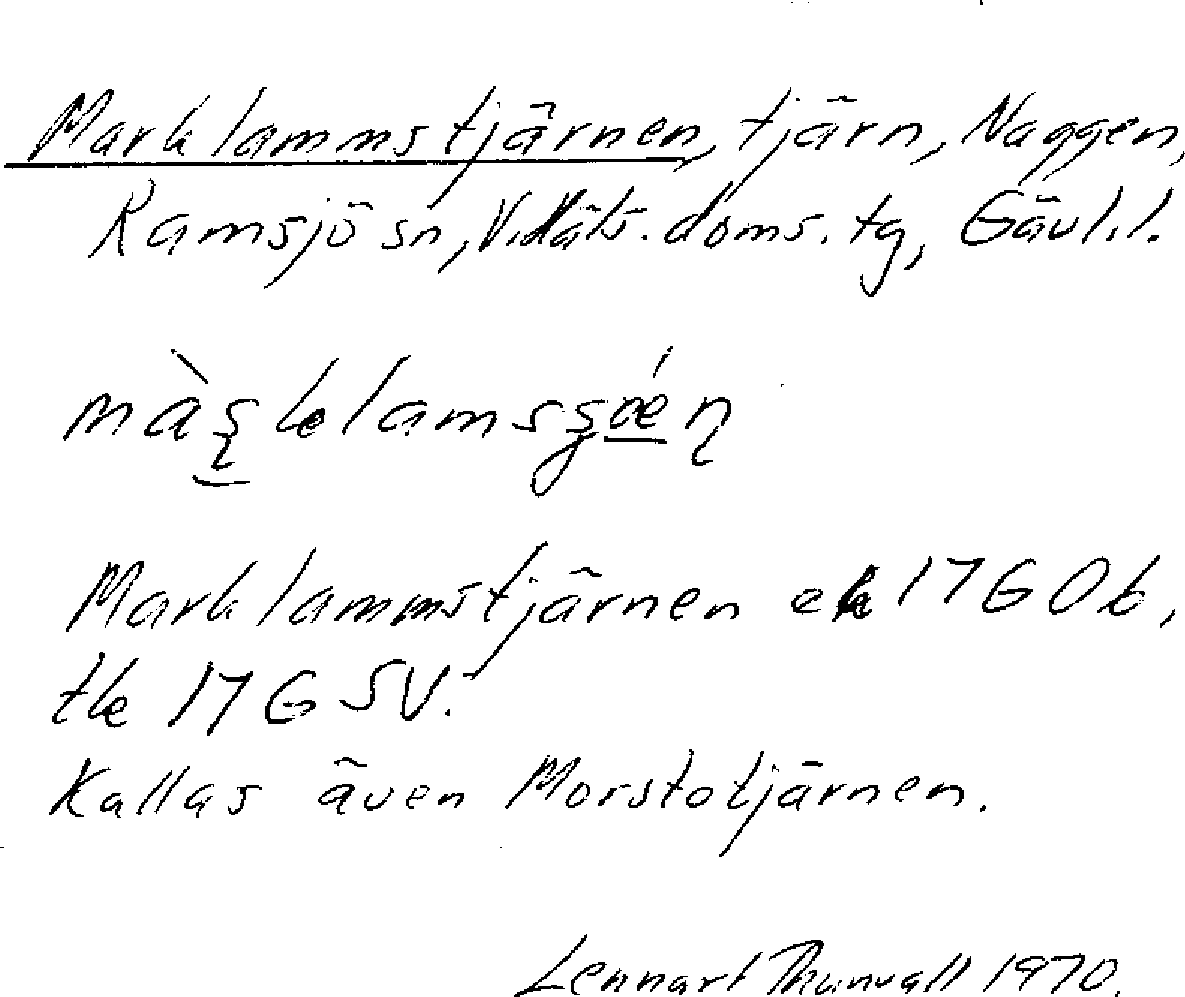 Marklammstjärnen, tjärn, Naggen,
Ramsjö sn, V. Häls. doms. tg, Gävl.l.
Marklammstjärnen ek 17G0b,
tk 17G SV.
Kallas även Morstotjärnen.
Lennart Thunvall 1970.